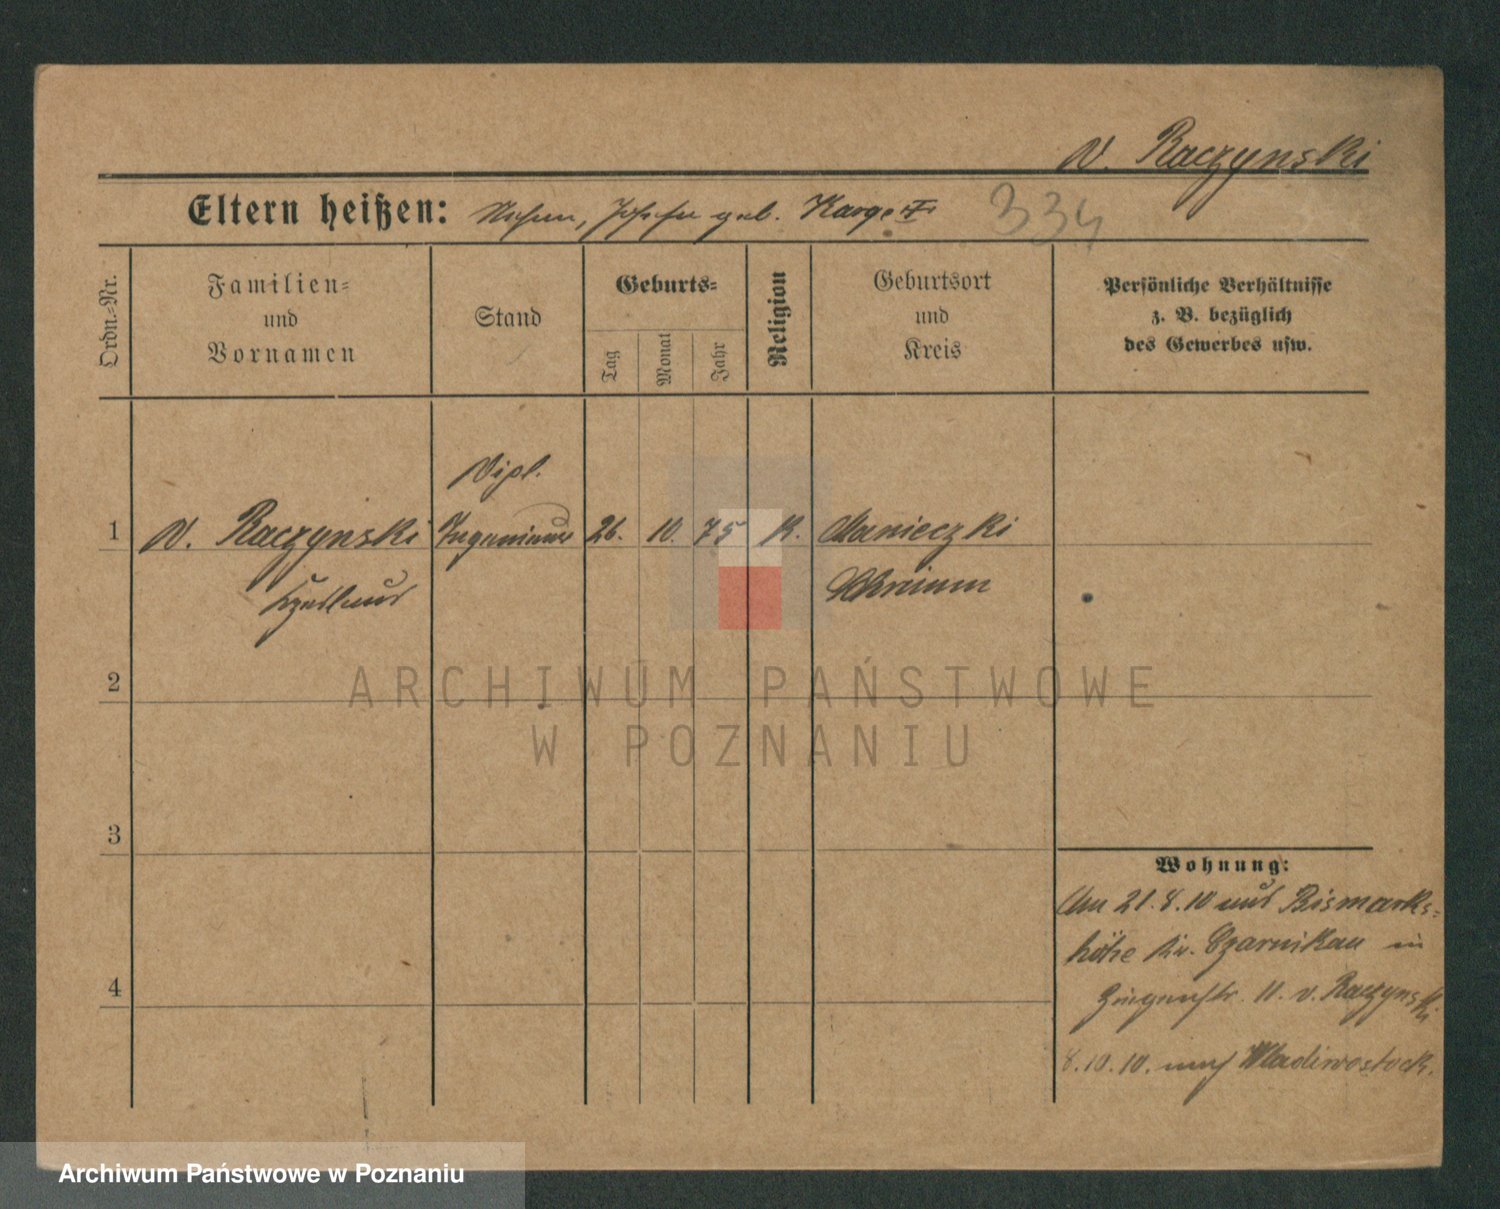 v. Raczynski
Eltern heißen: geb. Karge
334
Ordn.-Nr.
Familien-
und
Vornamen
Stand
Geburts-
Tag
Monat
Jahr
Religion
Geburtsort
und
Kreis
Persönliche Verhältnisse
z. B. bezüglich
des Gewerbes usw.
Dipl.
1 v. Raczynski Ingenieur 26. 10. 75 K. Manieczki
Schrimm
2
ARCHIWUM PAŃSTWOWE
W POZNANIU
3
Wohnung:
Am 21.8.10 aus Bismarks-
höhe Kr. Czarnikau in
11. v. Raczynski
8.10.10. nach Wladiwostock.
4
Archiwum Państwowe w Poznaniu